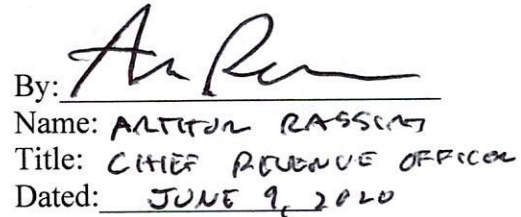 By:
Name: ARTHUR
Title: CHIEF REVENUE OFFICER
Dated: JUNE 9, 2020